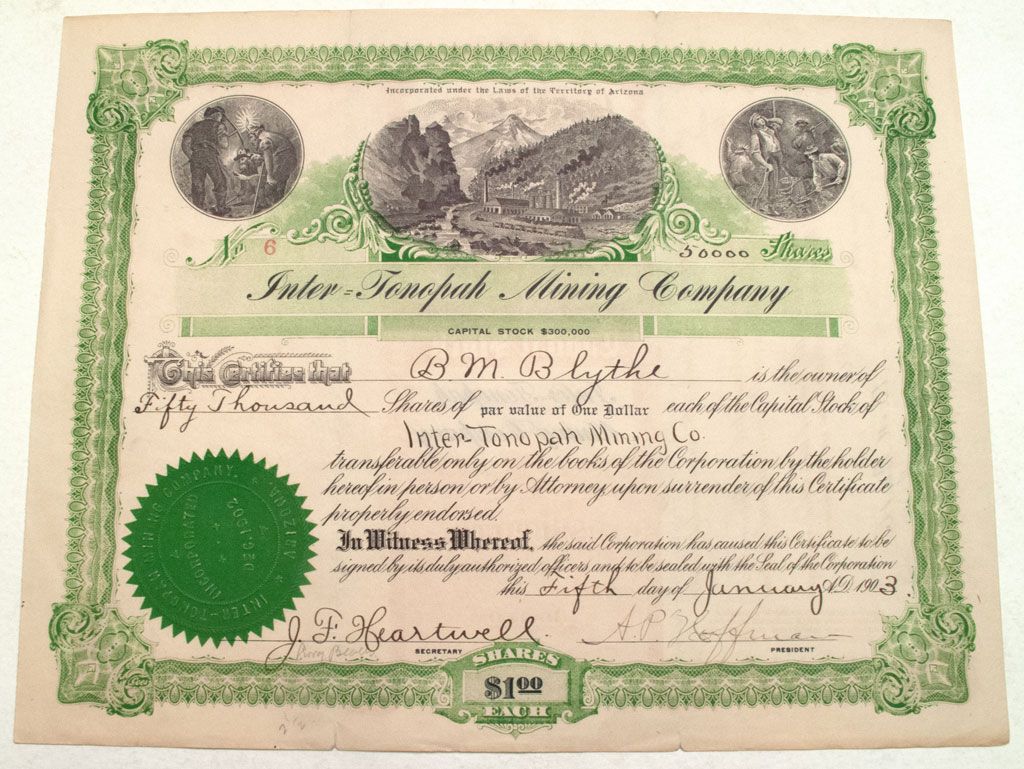 Incorporated under the Laws of the Territory of Arizona
No 6
50000 Shares
Inter-Tonopah Mining Company
CAPITAL STOCK $300,000
This Certifies that B. M. Blythe is the owner of
Fifty Thousand Shares of par value of One Dollar each of the Capital Stock of
Inter-Tonopah Mining Co.
transferable only on the books of the Corporation by the holder
hereof in person or by Attorney upon surrender of this Certificate
properly endorsed.
In Witness Whereof, the said Corporation has caused this Certificate to be
signed by its duly authorized officers and to be sealed with the Seal of the Corporation
this Fifth day of January A.D. 1903.
INTER-TONOPAH MINING COMPANY. ARIZONA
INCORPORATED
DEC. 1902
J. F. Heartwell. A. P. Hoffman
SECRETARY PRESIDENT
SHARES
$1.00
EACH